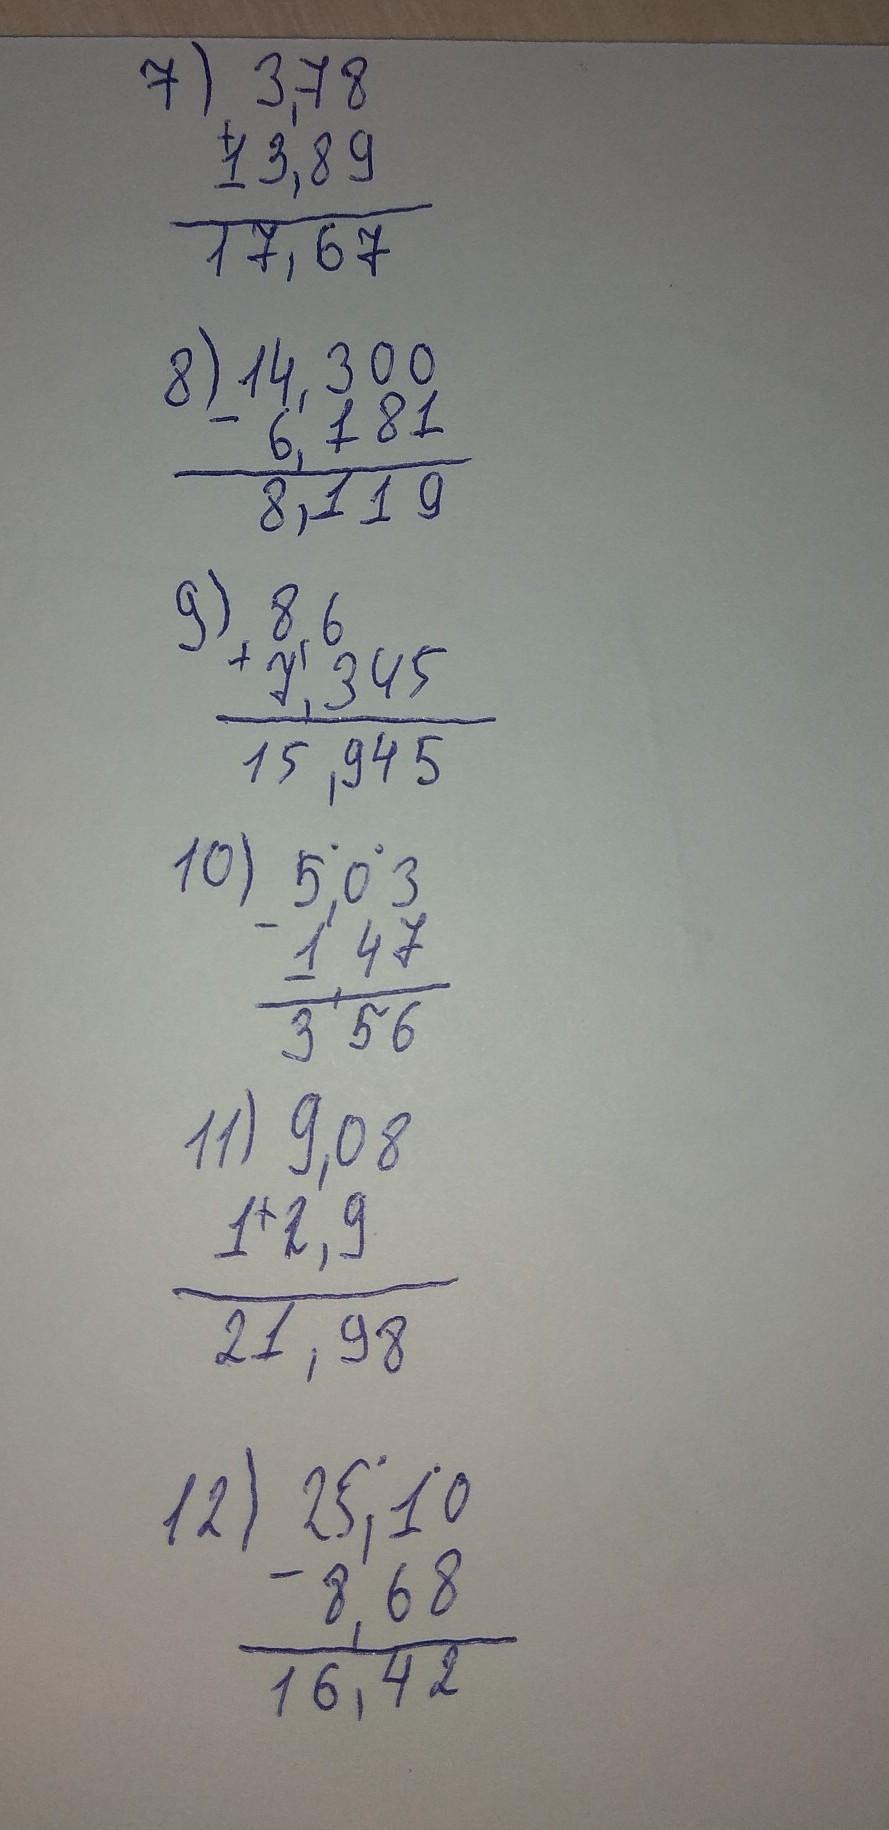 7) 3,78
+
13,89
17,67
8) 14,300
- 6,181
8,119
9) 8,6
+ 7,345
15,945
10) 5,03
- 1,47
3,56
11) 9,08
+
12,9
21,98
12) 25,10
- 8,68
16,42